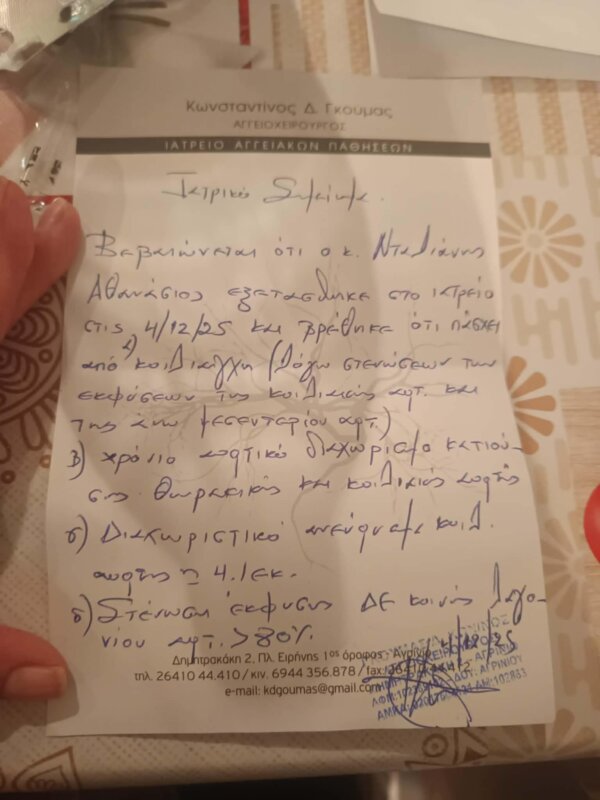 Κωνσταντίνος Δ. Γκούμας
ΑΓΓΕΙΟΧΕΙΡΟΥΡΓΟΣ
ΙΑΤΡΕΙΟ ΑΓΓΕΙΑΚΩΝ ΠΑΘΗΣΕΩΝ
Ιατρικό Σημείωμα.
Βεβαιώνεται ότι ο κ. Νταλιάνης
Αθανάσιος εξετάσθηκε στο ιατρείο
στις 4/12/25 και βρέθηκε ότι πάσχει
από α) κοιλιάγχη (λόγω στενώσεων των
εκφύσεων της κοιλιακής αρτ. και
της άνω μεσεντερίου αρτ.)
β) χρόνιο αορτικό διαχωρισμό κατιού-
σης θωρακικής και κοιλιακής αορτής
γ) Διαχωριστικό ανεύρυσμα κοιλ.
αορτής 4.1εκ.
δ) Στένωση έκφυσης ΔΕ κοινής λαγο-
νίου αρτ. >80%.
Δημητρακάκη 2, Πλ. Ειρήνης 1ος όροφος Αγρίνιο
τηλ. 26410 44.410 / κιν. 6944 356.878 / fax:
e-mail: kdgoumas@gmail.com